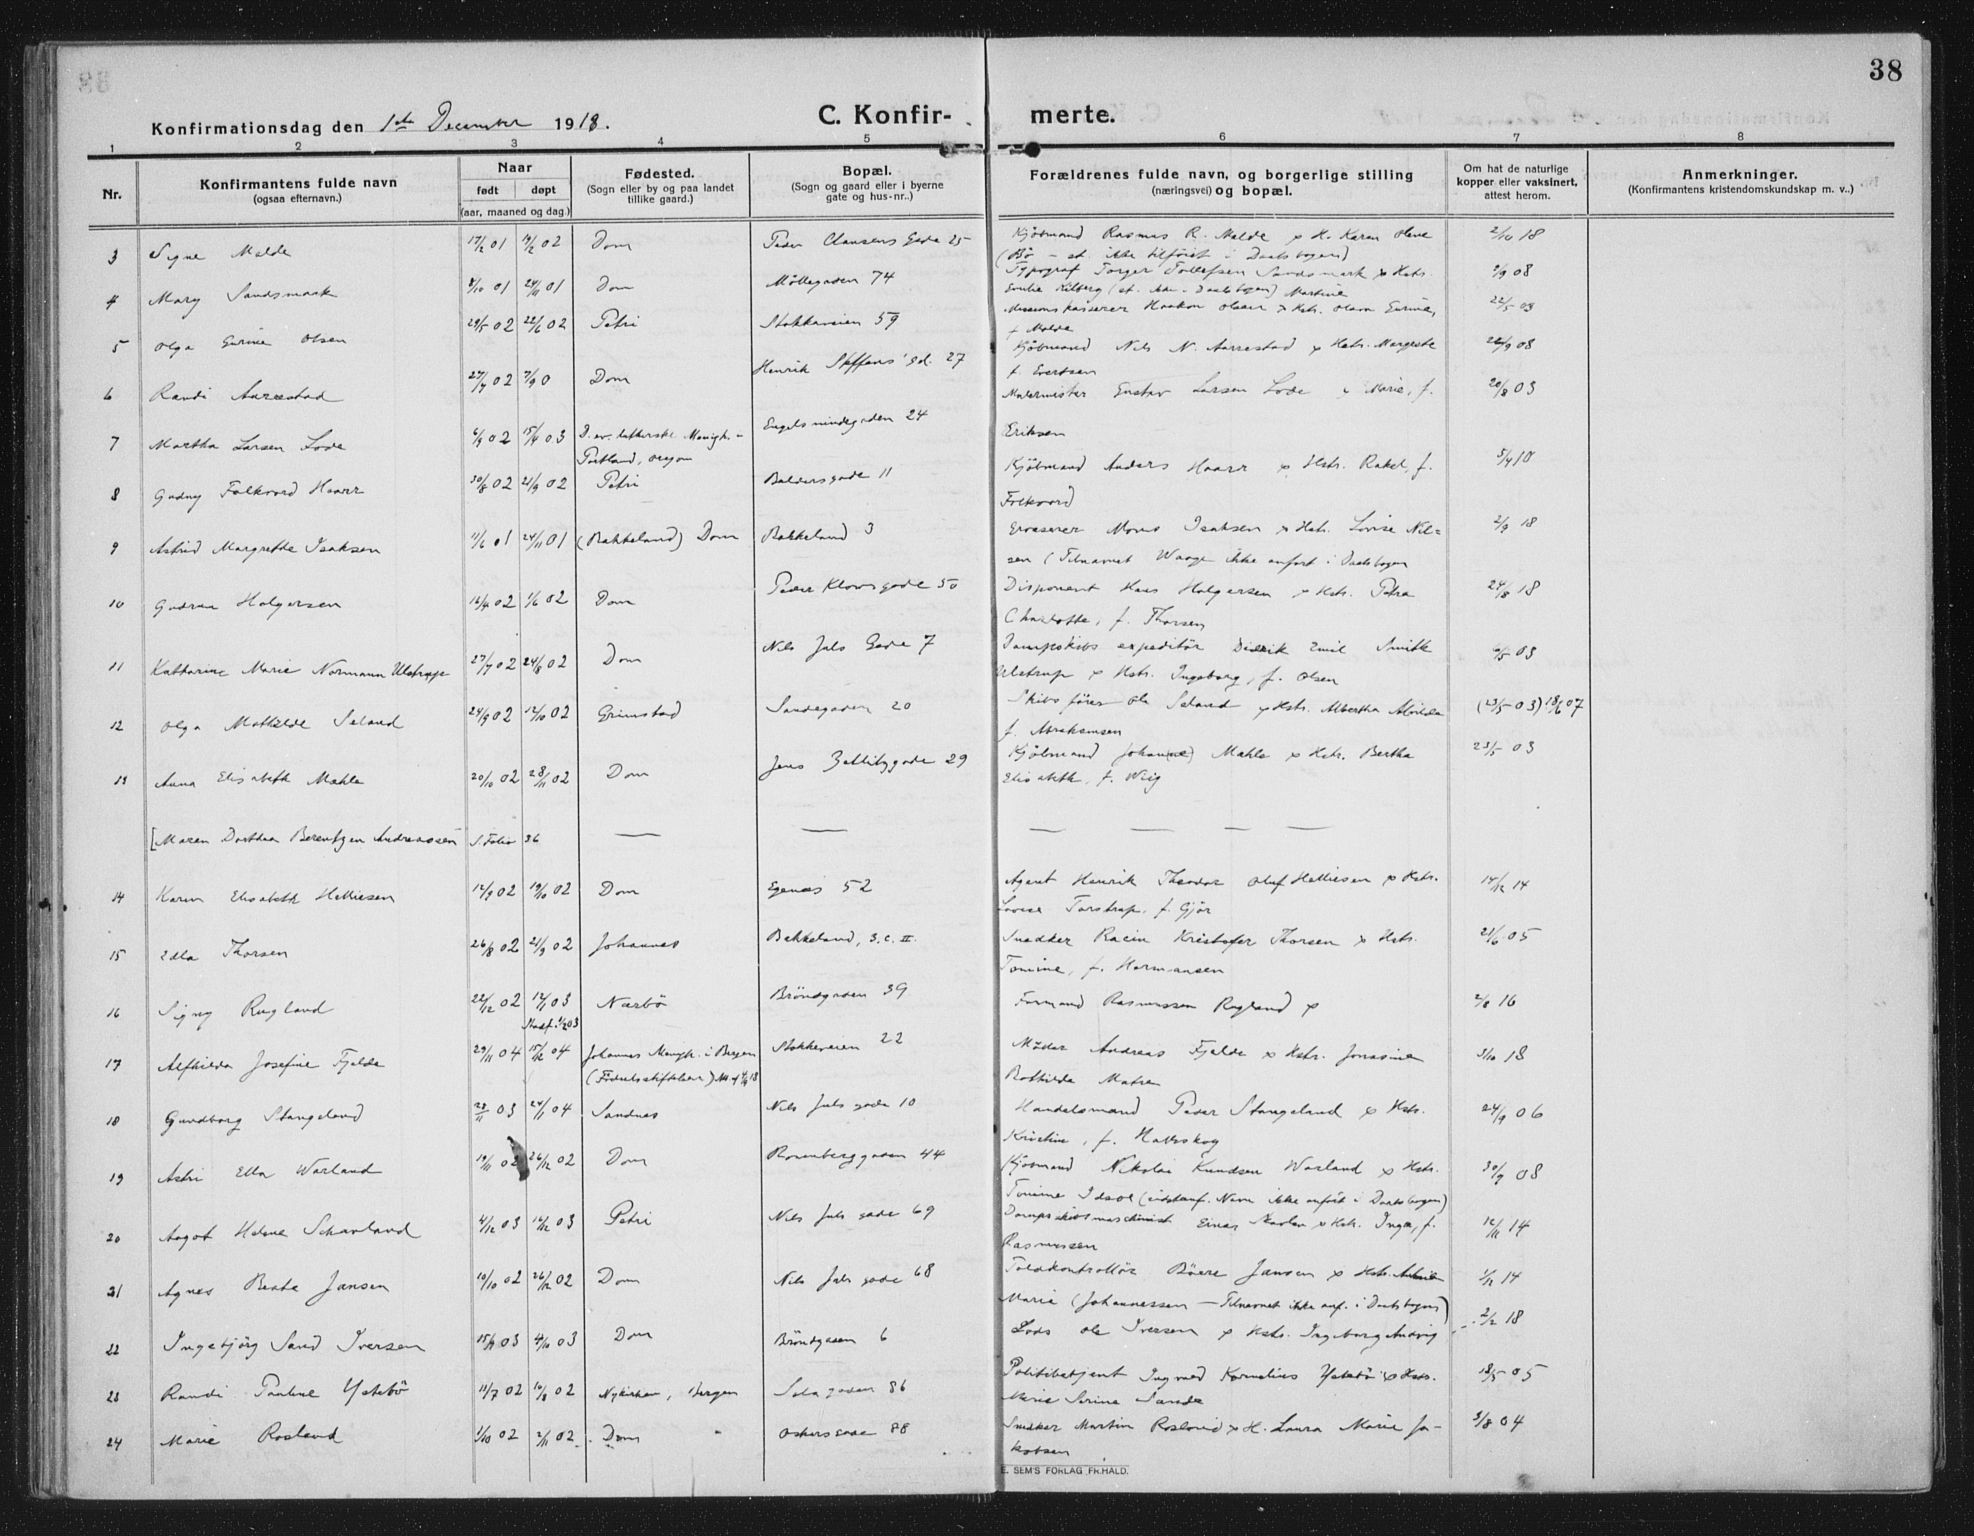 38
Konfirmationsdag den 1ste December 1918.
C. Konfir- merte.
1 2 3 4 5 6 7 8
Nr.
Konfirmantens fulde navn
(ogsaa efternavn.)
Naar
født døpt
(aar, maaned og dag)
Fødested.
(Sogn eller by og paa landet
tillike gaard.)
Bopæl.
(Sogn og gaard eller i byerne
gate og hus-nr..)
Forældrenes fulde navn, og borgerlige stilling
(næringsvei) og bopæl.
Om hat de naturlige
kopper eller vaksinert,
attest herom.
Anmerkninger.
(Konfirmantens kristendomskundskap m. v..)
3 Signe Malde 17/12 01 14/2 02 Dom Peder Clausens Gade 25 Kjöbmand Rasmus R. Malde x H. Karen Olene 2/10 18
(Bö - st. ikke tilföiet i Daabsbogen)
4 Mary Sandsmark 8/10 01 24/11 01 Dom Möllegaden 74 Typograf Torger Tollefsen Sandsmark x Hstr. 9/9 08
Martine
5 Olga Gurine Olsen 29/5 02 22/6 02 Petri Stokkaveien 59 Haakon Olsen x Hstr. Olava Gurine, 22/5 03
f. Malde
6 Randi Aarrestad 27/7 02 7/9 0 Dom Henrik Steffens' gd. 27 Kjöbmand Nils N. Aarrestad x Hstr. Margrete 08
f. Evertsen
7 Martha Larsen Lode 6/9 02 15/4 03 D. ev. lutherske Menigh. - Engelsmindegaden 24 Malermester Gustav Larsen Lode x Marie, f. 20/8 03
Portland, Oregon
Eriksen
8 Gudny Folkvord Haarr 30/8 02 21/9 02 Petri Baldersgade 11 Kjöbmand Anders Haarr x Hstr. Rakel, f. 5/4 10
Folkvord
9 Astrid Margrethe Isaksen 11/6 01 24/11 01 (Bakkeland) Dom Bakkeland 3 Isaksen x Hstr. Lovise Niel=
2/9 18
sen (Tilnavnet Waage ikke anfört i Daabsbogen
10 Gudrun Holgersen 16/4 02 1/6 02 Dom Peder Klows gade 50 Disponent Hans Holgersen x Hstr. Petra 24/8 18
Charlotte, f. Thorsen
11 Katharine Marie Normann Ulstrup 27/7 02 24/8 02 Dom Nils Juls Gade 7 Dampskibsexpeditör Didrik Emil Smith 03
Ulstrup x Hstr. Ingeborg, f. Olsen
12 Olga Mathilde Seland 24/9 02 12/10 02 Grimstad Sandegaden 20 Skibsförer Ole Seland x Hstr. Albertha Alvilda (23/5 03) 18/6 07
f. Abrahamsen
13 Anna Elisabeth Mæhle 20/10 02 28/11 02 Dom Jens Zetlitzgade 29 Kjöbmand Johan(ne) Mæhle x Hstr. Bertha 23/5 03
Elisabeth, f. Wiig
[Maren Dorthea Berentzen Andreassen S. Folio 36 — — — — — —
14 Karen Elisabeth Helliesen 12/9 02 19/10 02 Dom Egenæs 52 Agent Henrik Theodor Oluf Helliesen x Hstr. 14/12 14
Lovise Torstrup, f. Gjör
15 Edla Thorsen 26/8 02 21/9 02 Johannes Bakkeland, 3. c. II. Snedker Racin Kristofer Thorsen x Hstr. 21/6 05
Tomine, f. Hermansen
16 Signy Rugland 22/12 02 12/1 03 Nærbö Bröndgaden 39 Formand Rasmussen Rugland x 2/8 16
Stadf. 1/2 03
17 Alfhilda Josefine Fjelde 29/11 04 15/12 04 Johannes Menigh. i Bergen Stokkaveien 22 Andreas Fjelde x Hstr. Jonasine 3/10 18
(Födselsstiftelsen)
Bothilda Matre
18 Gundborg Stangeland 28/11 03 24/1 04 Sandnes Nils Juls gade 10 Handelsmand Peder Stangeland x Hstr. 24/9 06
Kristine, f. Hatleskog
19 Astri Ella Warland 19/11 02 26/12 02 Dom Rosenberggaden 44 Kjöbmand Nikolai Knudsen Warland x Hstr. 30/9 08
Tomine Idsoe (sidstanf. Navn ikke anfört i Daabsbogen)
20 Aagot Helene 4/12 03 03 Petri Nils Juls gade 69 Dampskibsmaskinist Einar x Hstr. Inga, f. 12/11 14
Rasmussen
21 Agnes Beate Jansen 10/10 02 26/12 02 Dom Nils Juls gade 68 Toldkontrollör Böere Jansen x Hstr. 1/12 14
Marie (Johannessen - Tilnavnet ikke anf. i Daabsbogen)
22 Ingebjörg Sand Iversen 03 4/10 03 Dom Bröndgaden 6 Lods Ole Iversen x Hstr. Ingeborg 2/12 18
23 Randi Pauline Ystebö 11/7 02 10/8 02 Nykirken, Bergen gaden 86 Politibetjent Ingvald Kornelius Ystebö x Hstr. 18/5 05
Marie Serine Sande
24 Marie Rosland 1/10 02 2/11 02 Dom Oskarsgade 88 Snedker Martin Roslavid x H. Laura Marie Ja- 3/8 04
kobsen
E. SEM'S FORLAG, FR.HALD.